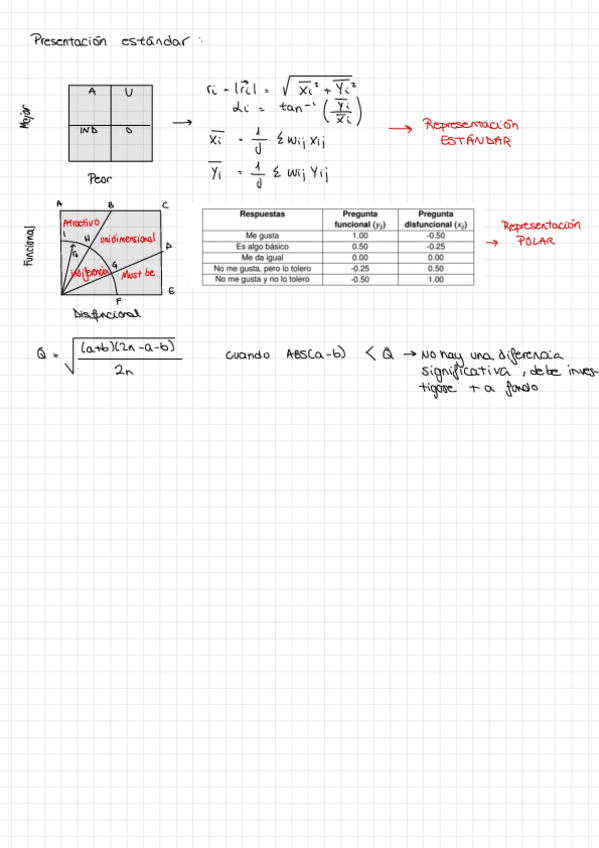 Presentación estándar :
Mejor
A U
IND O
Peor
ri = |r⃗i| = √(x̄i² + ȳi²)
αi = tan⁻¹ (ȳi / x̄i)
x̄i = 1/J Σ wij xij
ȳi = 1/J Σ wij Yij
→ Representación ESTÁNDAR
Funcional
A B C
Atractivo
I H unidimensional D
Indiferencia G Must be
F E
Disfuncional
Respuestas Pregunta funcional (yij) Pregunta disfuncional (xij)
Me gusta 1.00 -0.50
Es algo básico 0.50 -0.25
Me da igual 0.00 0.00
No me gusta, pero lo tolero -0.25 0.50
No me gusta y no lo tolero -0.50 1.00
→ Representación POLAR
Q = √((a+b)(2n-a-b) / 2n) cuando ABS(a-b) < Q → No hay una diferencia
significativa, debe inves-
tigarse + a fondo